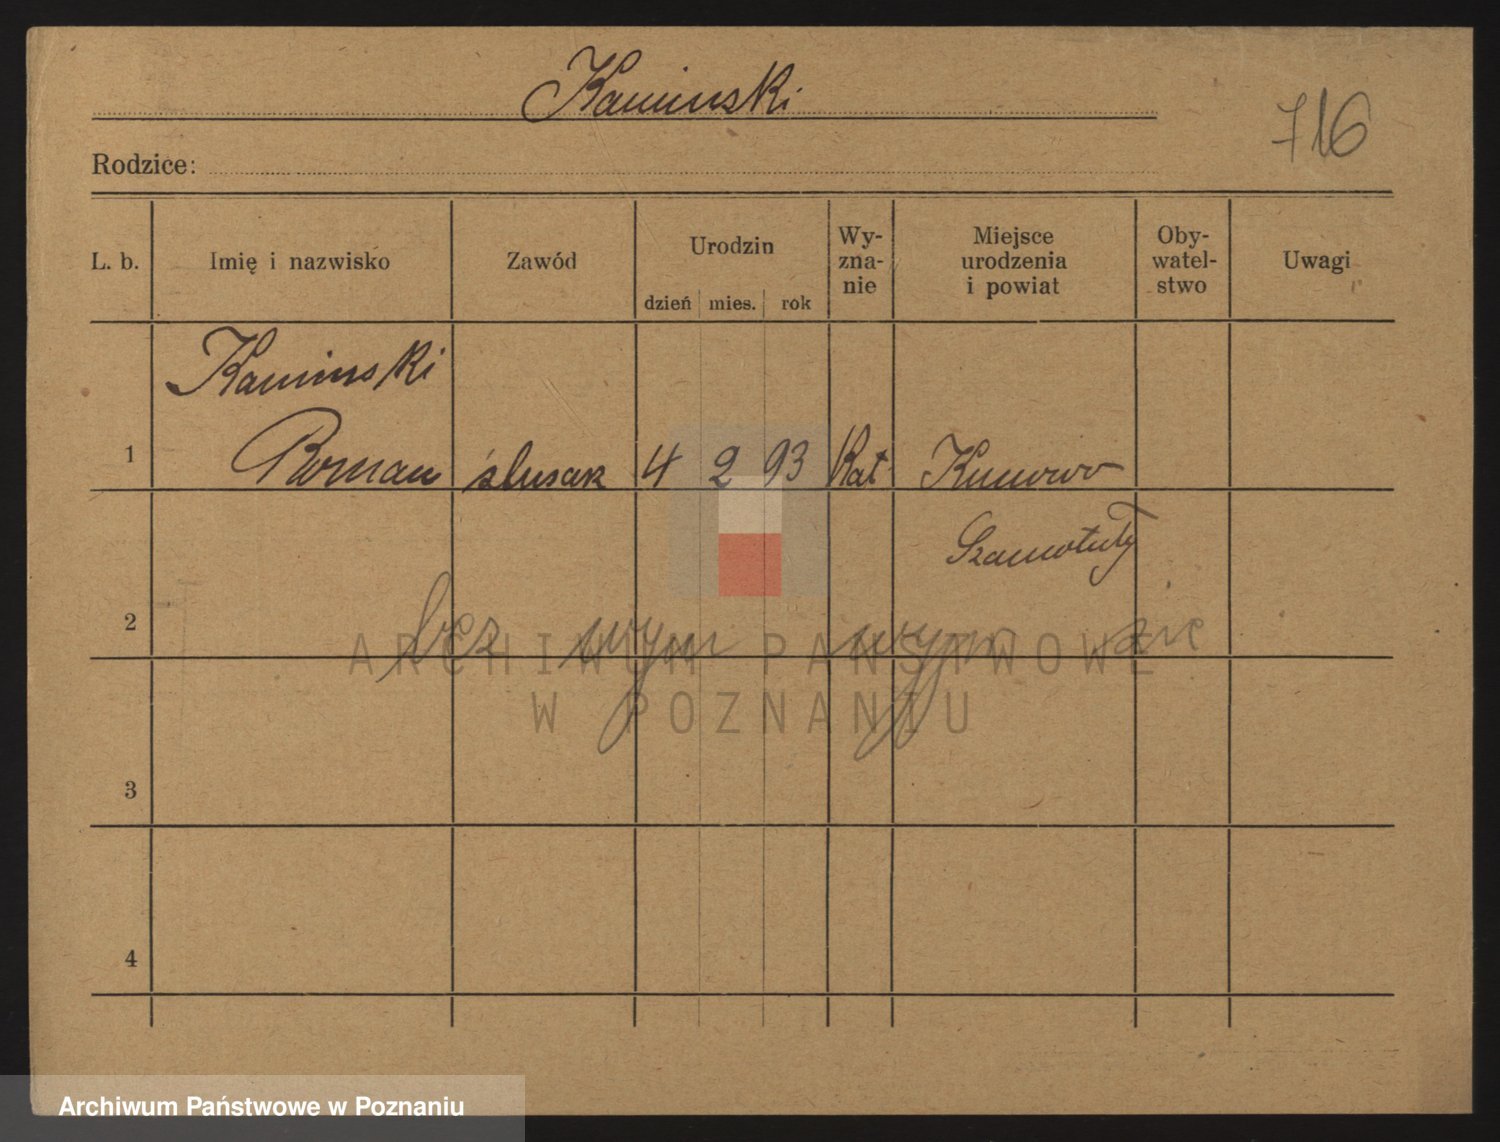 Kaminski
716
Rodzice:
L. b. Imię i nazwisko Zawód Urodzin dzień mies. rok Wy-zna-nie Miejsce urodzenia i powiat Oby-watel-stwo Uwagi
Kaminski
1 Roman ślusarz 4 2 93 Kat Kunowo
Szamotuły
2 bez wym wym
ARCHIWUM PAŃSTWOWE
W POZNANIU
3
4
Archiwum Państwowe w Poznaniu